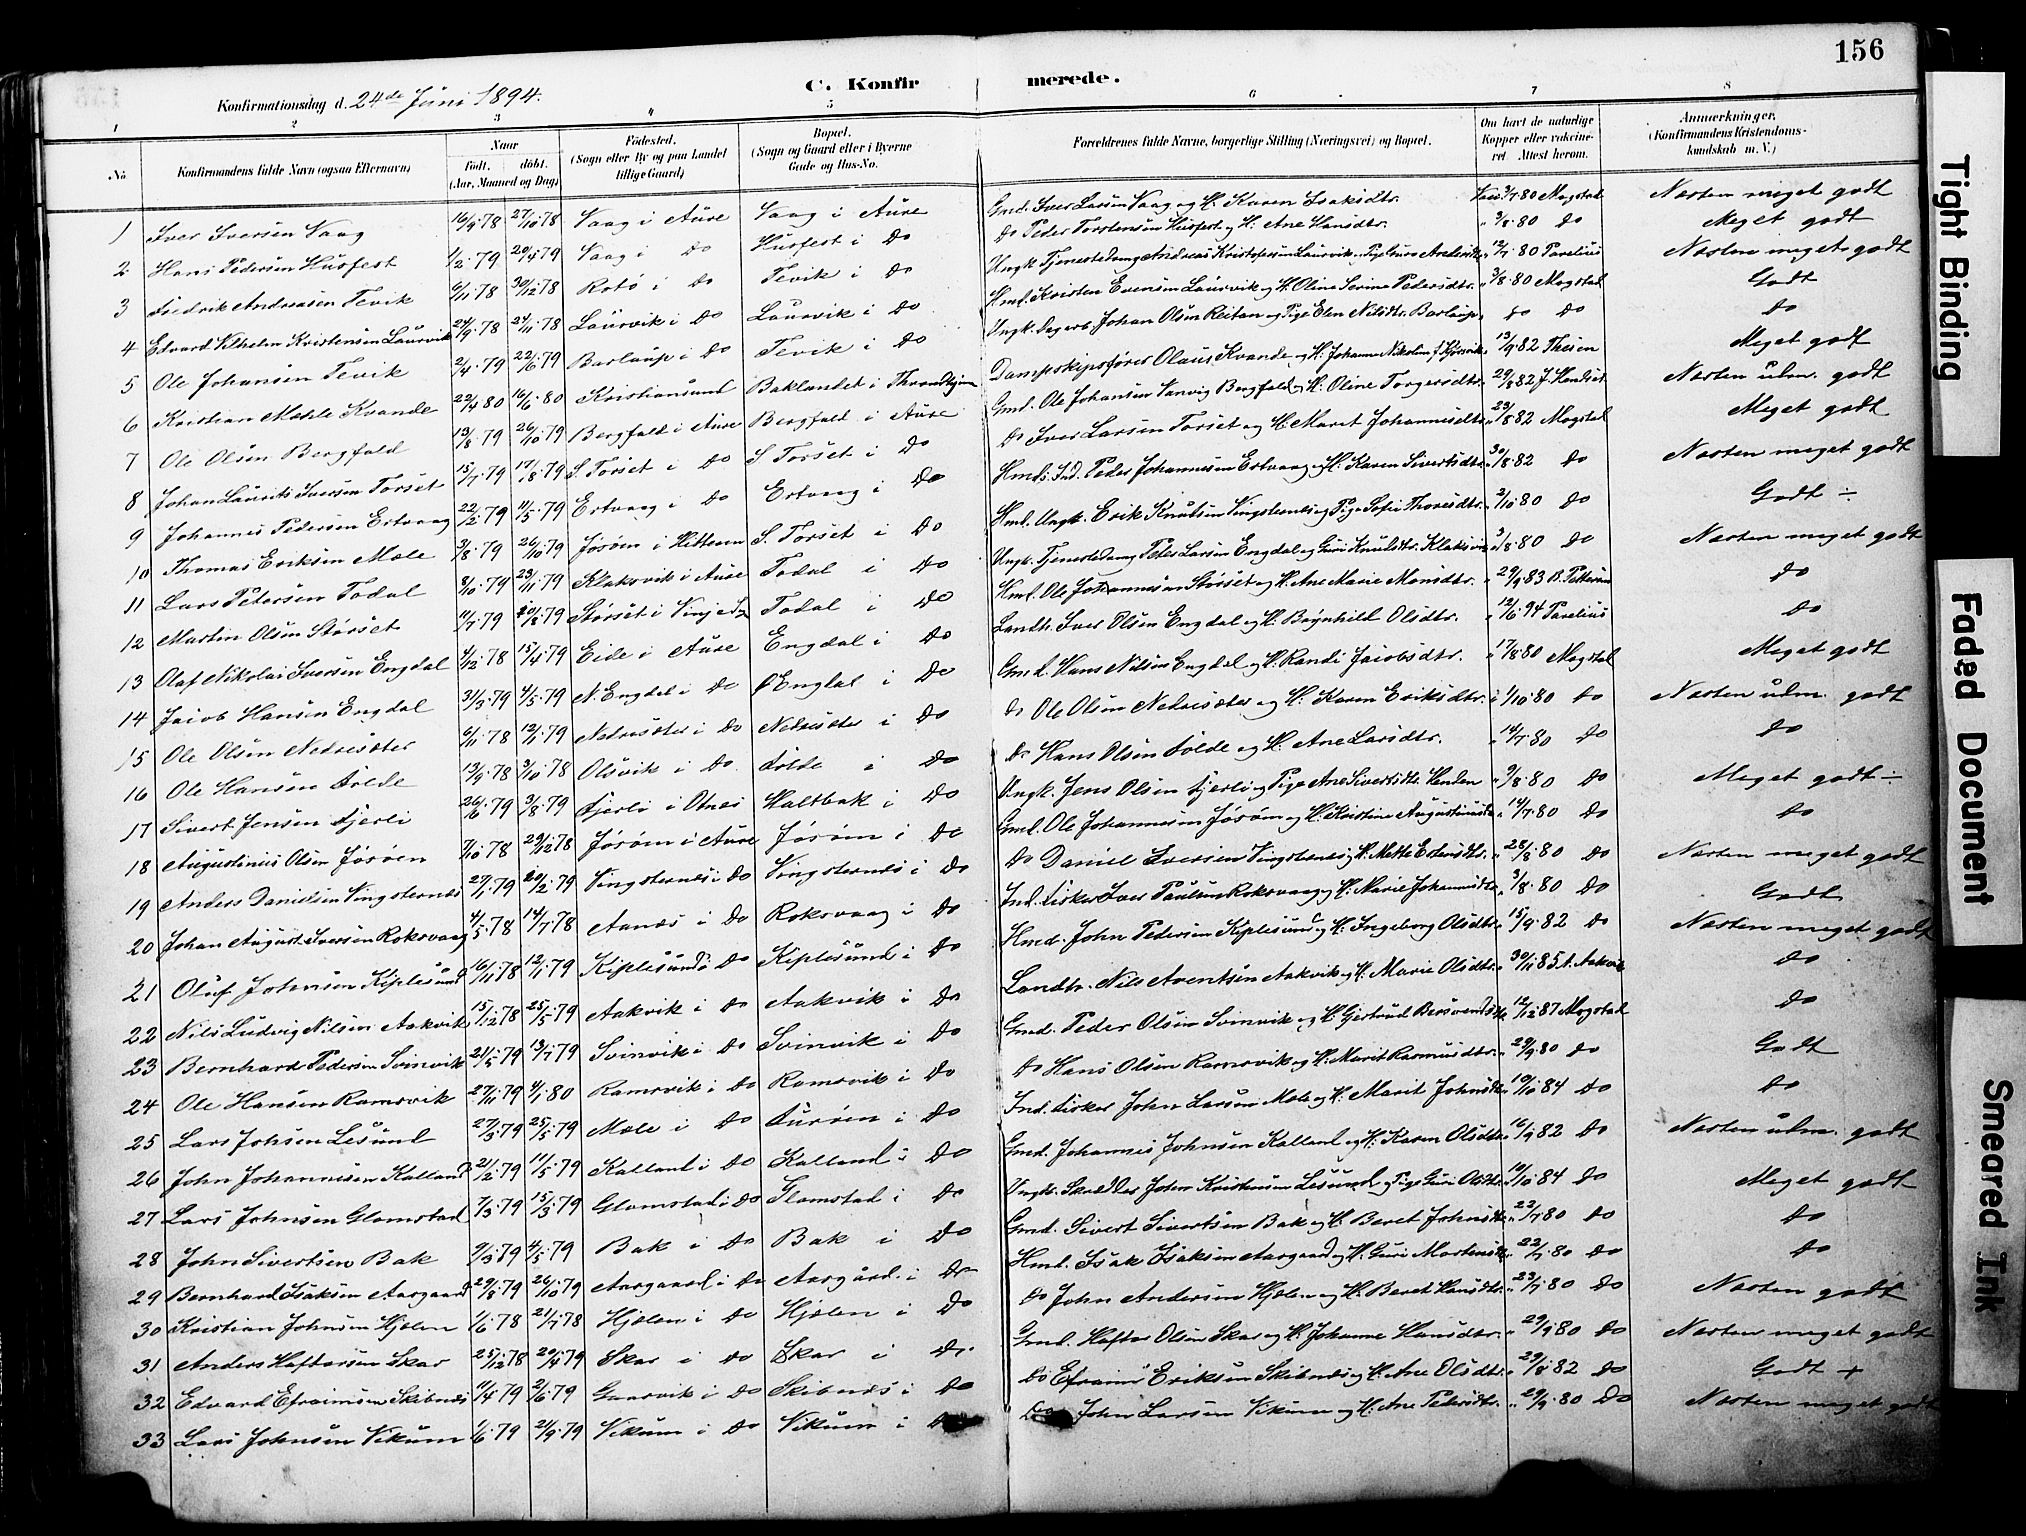 156
C. Konfirmerede.
Konfirmationsdag d. 24de Juni 1894.
1 2 3 4 5 6 7 8
No Konfirmandens fulde Navn (ogsaa Efternavn)
Naar
Födt. döbt.
(Aar, Maaned og Dag)
Födested.
(Sogn eller By og paa Landet tillige Gaard)
Bopæl.
(Sogn og Gaard eller i Byerne Gade og Hus-No.
Forældrenes fulde Navne, borgerlige Stilling (Næringsvei) og Bopæl.
Om havt de naturlige Kopper eller vakcineret. Attest herom.
Anmærkninger.
(Konfirmandens Kristendomskundskab m. V.)
1 Iver Iversen Vaag 16/9 78 27/10 78 Vaag i Aure Vaag i Aure Gmd. Iver Larsen Vaag og H. Karen Isaksdtr. Vac. 3/7 80 Mogstad Næsten meget godt
2 Hans Pedersen Husfest 1/2 79 20/4 79 Vaag i do Husfest i do do Peder Torstensen Husfest og H. Ane Hansdtr. " 3/8 80 do Meget godt
3 Fredrik Andreasen Tevik 6/11 78 30/12 78 Rotö i do Tevik i do Ungk. Tjenestedreng Andreas Kristofersen Laurvik og Pige 12/7 80 Parelius Næsten meget godt
4 Edvard Vilhelm Kristensen Laurvik 24/9 78 24/11 78 Laurvik i do Laurvik i do Hmd. Kristen Evensen Laurvik og H. Oline Serine Pedersdtr. " 3/8 80 Mogstad Godt
5 Ole Johansen Tevik 2/4 79 22/6 79 Barlaup i do Tevik i do Ungk. Dagarb. Johan Olsen Reitan og Pige Elen Nilsdtr. Barlaup do do do
6 Kristian Mæhle Kvande 22/4 80 16/6 80 Kristiansund Baklandet i Throndhjem Dampskipsfører Olaus Kvande og H. Johanne Nikoline 13/9 82 Thesen Meget godt
7 Ole Olsen Bergfald 13/8 79 26/10 79 Bergfald i Aure Bergfald i Aure Gmd. Ole Johansen Vanvig Bergfald og H. Oline Torgersdtr. 29/8 82 Næsten udm. godt
8 Johan Laurits Iversen Torset 15/7 79 17/8 79 S. Torset i do S. Torset i do do Iver Larsen Torset og H. Maret Johannesdtr. 23/8 82 Mogstad Meget godt
9 Johannes Pedersen Ertvaag 22/2 79 11/5 79 Ertvaag i do Ertvaag i do Hmd. Ind. Peder Johannesen Ertvaag og H. Karen Sivertsdtr. 30/8 82 do Næsten meget godt
10 Thomas Eriksen Mæle 3/8 79 26/10 79 Jøsøen i Hitteren S. Torset i do Hmd. Ungk. Erik Knutsen Vingsternes og Pige Sofie Thoresdtr. 2/10 80 do Godt ÷
11 Lars Petersen Todal 8/10 79 23/11 79 Klaksvik i Aure Todal i do Ungk. Tjenestedreng Peter Larsen Engdal og Guri Knutsdtr. Klaksvik 3/8 80 do Næsten meget godt
12 Martin Olsen Størset 11/7 79 20/8 79 Størset i Vinje Todal i do Hmd. Ole Johannesen Størset og H. Ane Marie Monsdtr. " 29/9 83 B. Pettersen do
13 Olaf Nikolai Iversen Engdal 4/12 78 15/4 79 Eide i Aure Engdal i do Landh. Iver Olsen Engdal og H. Brynhild Olsdtr. " 12/6 94 Parelius do
14 Jacob Hansen Engdal 31/3 79 4/5 79 N. Engdal i do Ø Engdal i do Gmd. Hans Nilsen Engdal og H. Randi Jacobsdtr. " 17/8 80 Mogstad Meget godt
15 Ole Olsen Nedresæter 6/11 78 12/1 79 Nedresæter i do Nedresæter i do do Ole Olsen Nedresæter og H. Karen Eriksdtr. 1/10 80 do Næsten udm. godt
16 Ole Hansen Folde 13/9 78 3/10 78 Olsvik i do Folde i do do Hans Olsen Folde og H. Ane Larsdtr. " 14/7 80 do do
17 Sivert Jensen Fjerli 26/6 79 3/8 79 Fjerli i Otnes Haltbak i do Ungk. Jens Olsen Fjerli og Pige Ane Sivertsdtr. Henden " 9/8 80 do Meget godt ÷
18 Augustinus Olsen Jøsøen 7/10 78 29/12 78 Jøsøen i Aure Jøsøen i do Gmd. Ole Johannesen Jøsøen og H. Kristine Augustinusdtr. 14/7 80 do do
19 Anders Danielsen Vingsternes 27/1 79 20/2 79 Vingsternes i do Vingsternes i do do Daniel Iversen Vingsternes og H. Mette 28/8 80 do Næsten meget godt
20 Johan August Iversen Roksvaag 4/5 78 14/7 78 Aanes i do Roksvaag i do Ind. Fisker Iver Paulsen Roksvaag og H. Marie Johannesdtr. 3/8 80 do Godt
21 Oluf Johnsen Kiplesund 16/11 78 12/1 79 Kiplesund i do Kiplesund i do Hmd. John Pedersen Kiplesund og H. Ingeborg Olsdtr. 15/9 82 do Næsten meget godt
22 Nils Ludvig Nilsen Aakvik 15/12 78 25/5 79 Aakvik i do Aakvik i do Landh. Nils Arentsen Aakvik og H. Marie Olsdtr. 30/11 85 A. Aakvik do
23 Bernhard Pedersen Svinvik 21/5 79 13/7 79 Svinvik i do Svinvik i do Gmd. Peder Olsen Svinvik og H. Gjertrud 12/12 87 Mogstad do
24 Ole Hansen Ramsvik 27/11 79 4/1 80 Ramsvik i do Ramsvik i do do Hans Olsen Ramsvik og H. Marit Rasmusdtr. 29/9 80 do Godt
25 Lars Johsen Lesund 27/3 79 25/5 79 Mæle i do Furøen i do Ind. Fisker John Larsen Mæle og H. Marit Johnsdtr. 10/10 84 do do
26 John Johannesen Kalland 21/2 79 11/5 79 Kalland i do Kalland i do Gmd. Johannes Johnsen Kalland og H. Karen Olsdtr. 16/9 82 do Næsten udm. godt
27 Lars Johnsen Glomstad 7/3 79 15/3 79 Glomstad i do Glomstad i do Ungk. John Kristensen Lesund og Pige Guri Olsdtr. 10/10 84 do Meget godt
28 John Sivertsen Bak 9/3 79 4/5 79 Bak i do Bak i do Gmd. Sivert Sivertsen Bak og H. Beret Johnsdtr. 22/7 80 do do
29 Bernhard Isaksen Aargaard 29/8 79 26/10 79 Aargaard i do Aargård i do Hmd. Isak Isaksen Aargaard og H. Guri Mortensdtr. 22/7 80 do do
30 Kristian Johnsen Hjelen 1/6 78 21/7 78 Hjelen i do Hjelen i do do John Andersen Hjelen og H. Beret Hansdtr. 23/7 80 do Næsten godt
31 Anders Haftorsen Skar 25/12 78 20/4 79 Skar i do Skar i do Gmd. Haftor Olsen Skar og H. Johanne Hansdtr. " 29/9 80 do Næsten meget godt
32 Edvard Efraimsen Skibnes 11/4 79 2/6 79 Gaarvik i do Skibnes i do do Efraim Eriksen Skibnes og H. Ane Olsdtr. 23/8 82 do Godt +
33 Lars Johnsen Vikum 1/6 79 21/9 79 Vikum i do Vikum i do do John Larsen Vikum og H. Ane Pedersdtr. " 29/9 80 do Næsten meget godt
Tight Binding
Faded Document
Smeared Ink